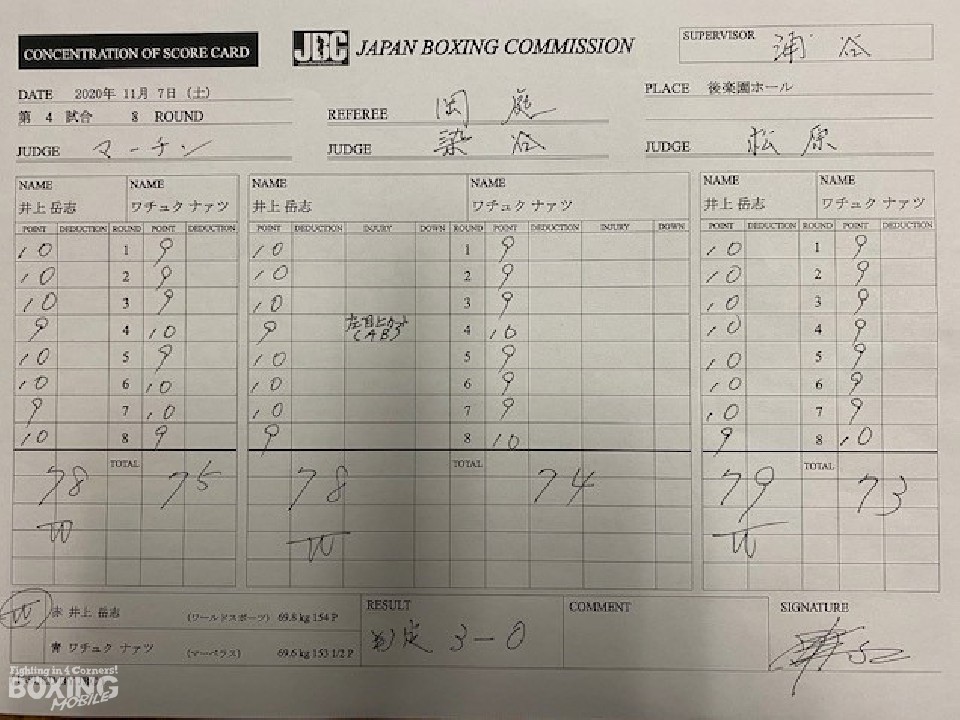 CONCENTRATION OF SCORE CARD
JBC JAPAN BOXING COMMISSION
SUPERVISOR 浦谷
DATE 2020年 11月 7日 (土)
PLACE 後楽園ホール
第 4 試合 8 ROUND
REFEREE 岡庭
JUDGE マーチン
JUDGE 染谷
JUDGE 松原
NAME NAME NAME NAME NAME NAME
井上 岳志 ワチュク ナァツ 井上 岳志 ワチュク ナァツ 井上 岳志 ワチュク ナァツ
POINT DEDUCTION ROUND POINT DEDUCTION POINT DEDUCTION INJURY DOWN ROUND POINT DEDUCTION INJURY DOWN POINT DEDUCTION ROUND POINT DEDUCTION
10 1 9 10 1 9 10 1 9
10 2 9 10 2 9 10 2 9
10 3 9 10 3 9 10 3 9
9 4 10 9 左目上カット (AB) 4 10 10 4 9
10 5 9 10 5 9 10 5 9
10 6 10 10 6 9 10 6 9
9 7 10 10 7 9 10 7 9
10 8 9 9 8 10 9 8 10
TOTAL TOTAL TOTAL
78 75 78 74 79 73
W W W
W 赤 井上 岳志 (ワールドスポーツ) 69.8 kg 154 P
青 ワチュク ナァツ (マーベラス) 69.6 kg 153 1/2 P
RESULT
判定 3-0
COMMENT
SIGNATURE
Fighting in 4 Corners!
BOXING
MOBILE